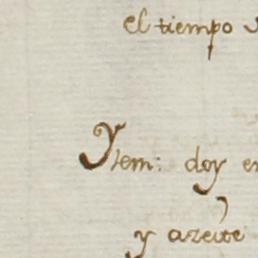 el tiempo
Ytem: doy en
y azeite